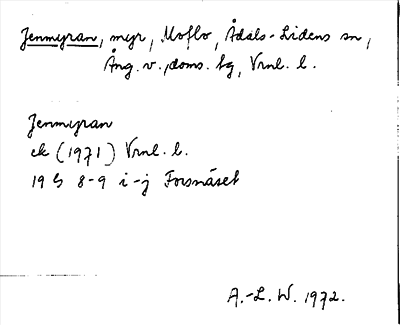 Jenmyran, myr, Moflo, Ådals-Lidens sn,
Ång. v., doms. tg, Vrnl. l.
Jenmyran
ek (1971) Vrnl. l.
19 G 8-9 i-j Forsnäset
A.-L. W. 1972.